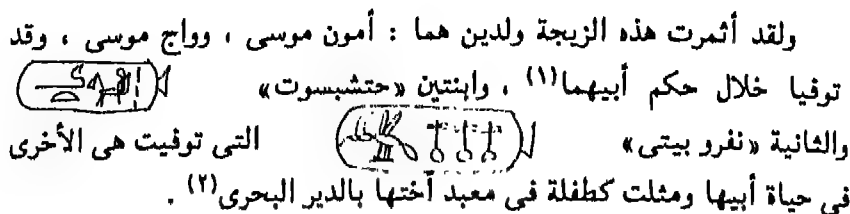 ولقد أثمرت هذه الزيجة ولدين هما : أمون موسى ، وواج موسى ، وقد
توفيا خلال حكم أبيهما(١) ، وابنتين «حتشبسوت»
والثانية «نفرو بيتى» التى توفيت هى الأخرى
فى حياة أبيها ومثلت كطفلة فى معبد أختها بالدير البحرى(٢) .